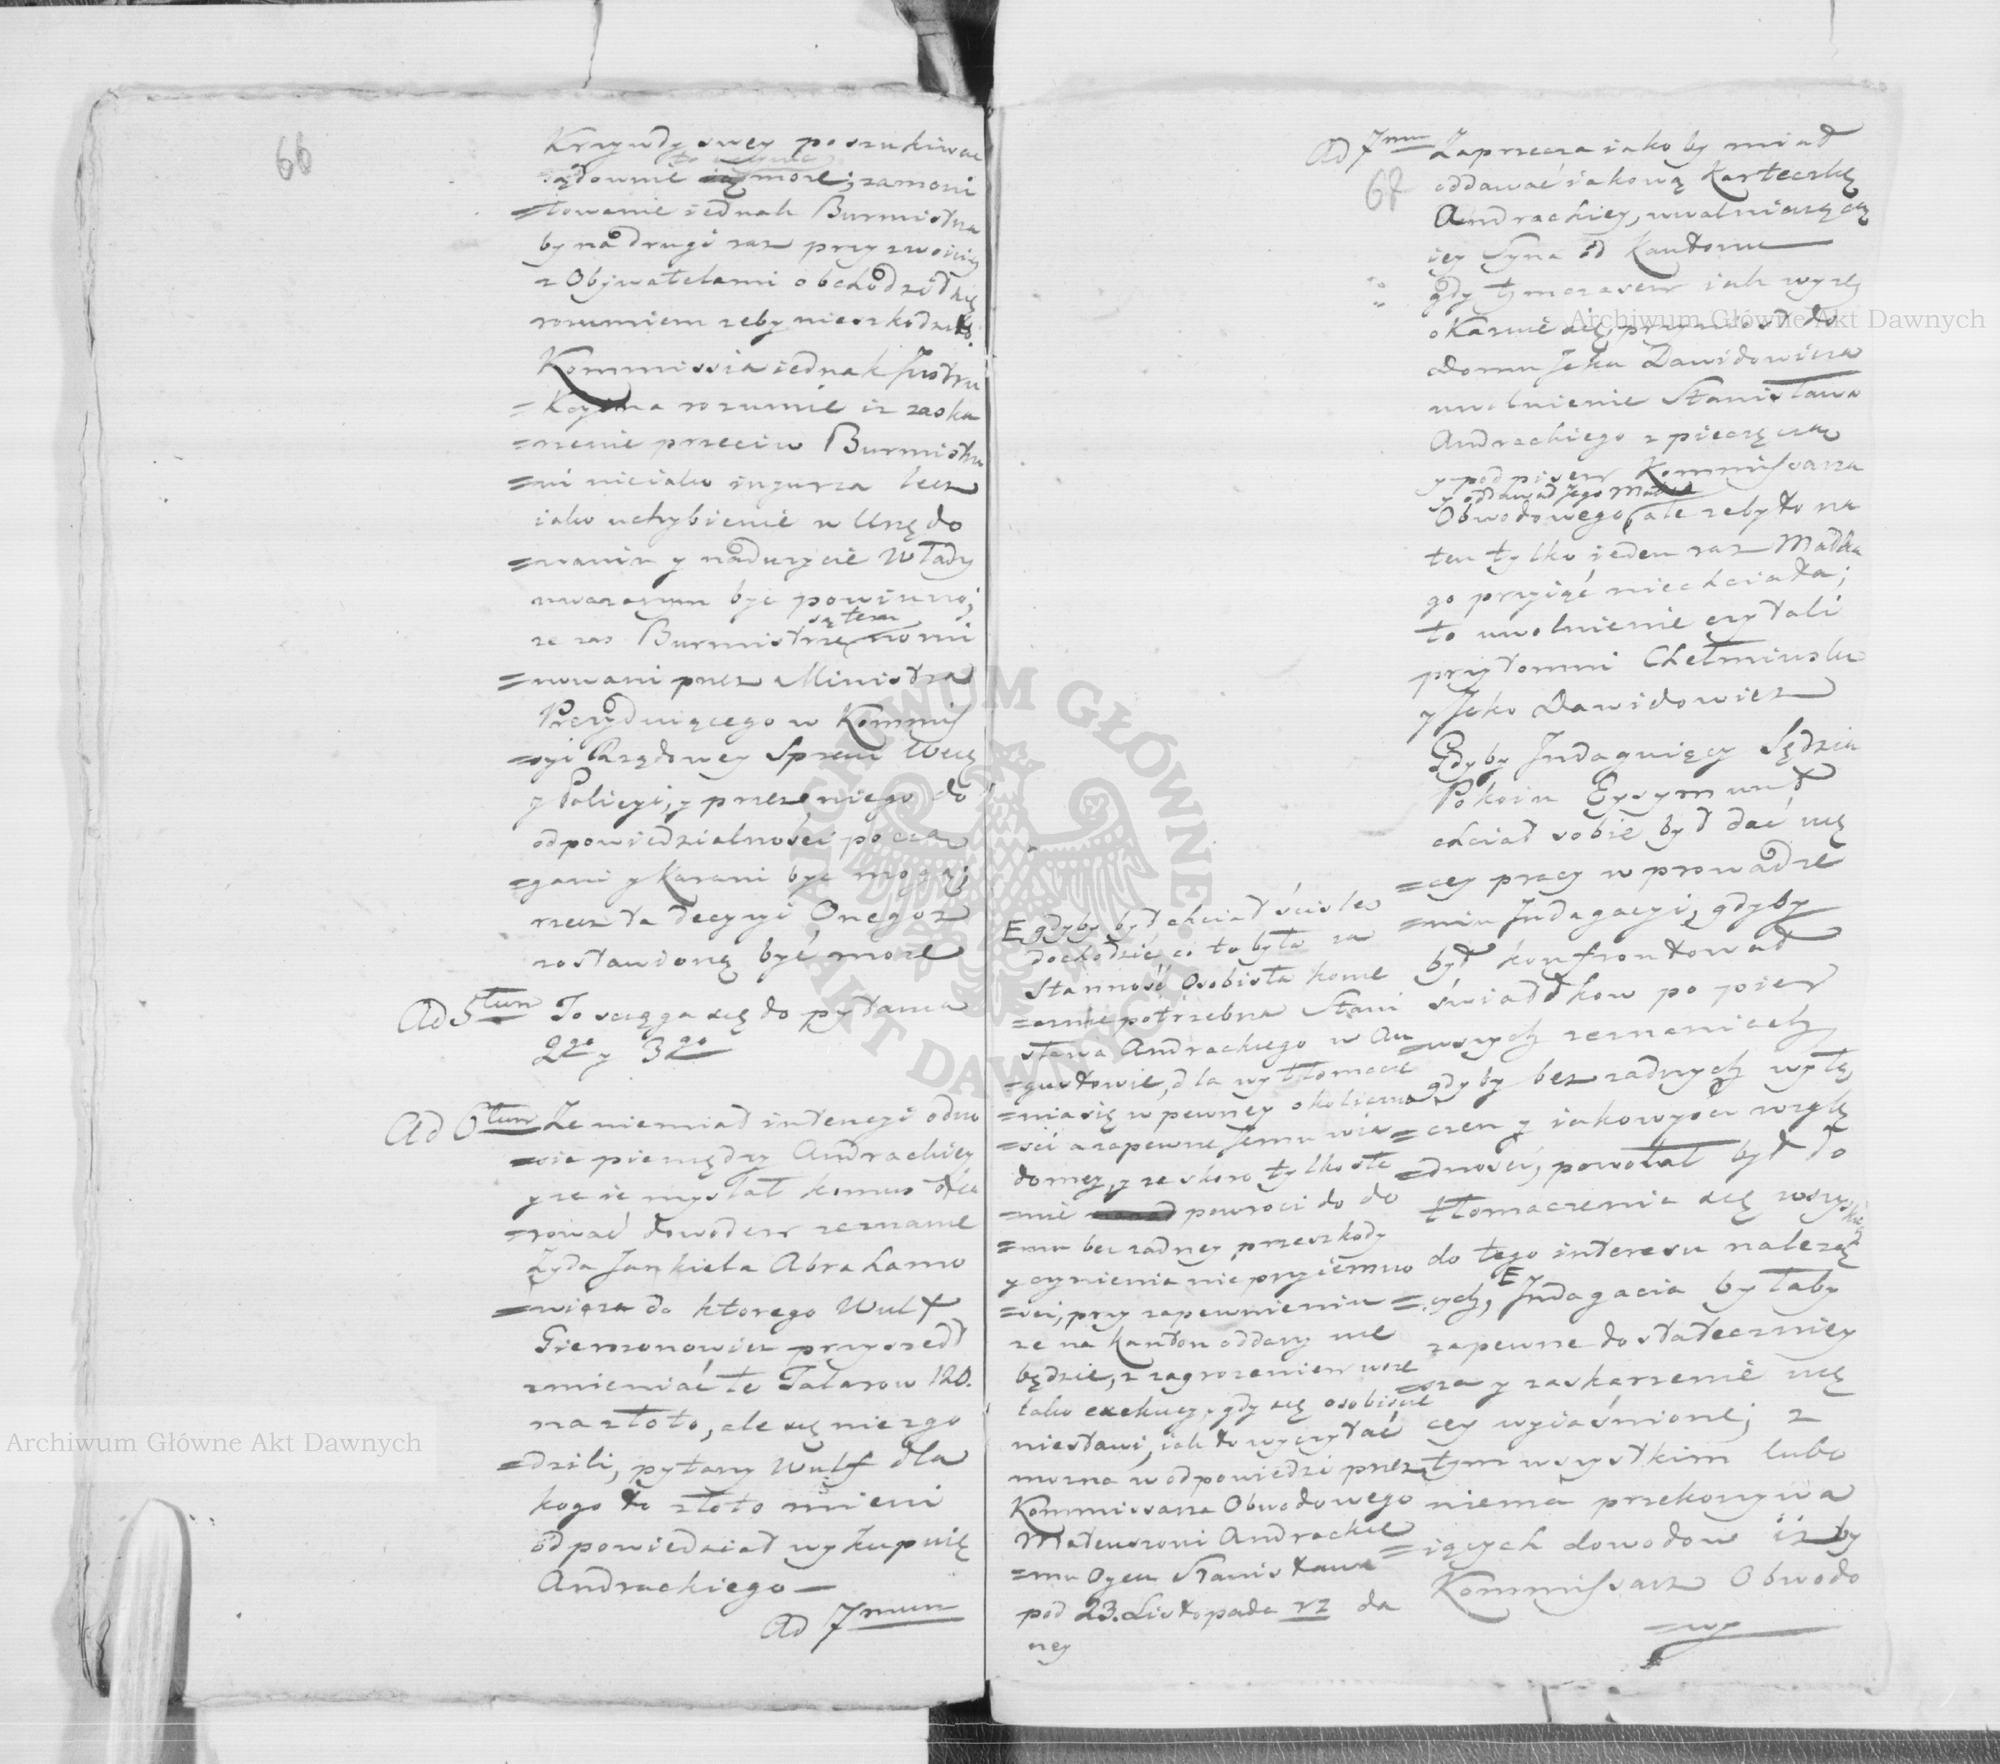 66
Krzywdy swey poszukiwac
to uczynic
sądownie może; zamoni
=towanie iednak Burmistrza
by na drugi raz przyzwoiciey
z Obywatelami obchodził się
rozumiem zeby nieszkodziło.
Kommissia iednak Instru
=kcyina rozumié iz zaska
=rzenie przeciw Burmistrzo
=wi nieiako iniurza lecz
iako uchybienie w Urzędo
=waniu y nadużycie Władzy
uwazanym byc powinno;
ze zas Burmistrze są teraz nomi
=nowani przez Ministra
Prezyduiącego w Kommis
=syi Rządowey Spraw Wew
y Policyi, y przez niego do
odpowiedzialności pocią
=gani y karani być mogą;
rzecz ta decyzyi Onegoż
zostawioną być może
Ad 5tum To sciąga się do pytania
2go y 3go
Ad 6tum Ze niemiał intencyi odno
=sic pieniędzy Andrackiey
y ze ie myslał komus ofia
=rować dowodem zeznanie
Żyda Jankiela Abrahamo
=wicza do ktorego Wulf
Giemzonowicz przyszedł
zmieniać te Talarow 120.
na złoto, ale się niezgo
=dzili, pytany Wulf dla
kogo to złoto mieni
odpowiedział wykupuię
Andrackiego —
Ad 7mum
Ad 7mum Zaprzecza iakoby miał
67 oddawać iakową Karteczkę
Andrackiey, uwalniaiącą
iey Syna od Kantonu
gdy tymczasem iak wyzey
okazuié się, przyniosł do
domu Jcka Dawidowicza
uwolnienie Stanisława
Andrackiego z pieczęcią
y podpisem Kommissarza
y oddawał Jego Matce
Obwodowego, ale ze było na
ten tylko ieden raz Matka
go przyiąć niechciała;
to uwolnienie czytali
przytomni Chełmiński
y Jcko Dawidowicz
Gdyby Indaguiący Sędzia
Pokoiu Eysymunt
chciał sobie był dać wię
=cey pracy w prowadze
=niu Indagacyi, gdyby
był konfrontował
świadkow po pier
=wszych zeznaniach
gdyby bez zadnych wyłą
=czen y iakowyści wzglę
=dności, powołał był do
tłomaczenia się wszystkich
do tego interesu nalezą
=cych, E Indagacia byłaby
zapewne dostateczniey
=sza y zaskarzenié wię
cey wyiaśnione; z
tym wszystkim lubo
niema przekonywa
=iących dowodow izby
Kommissarz Obwodo
=wy
E gdyby był chciał ściśle
dochodzić co to była za
Stanność Osobista konie
=cznie potrzebna Stani
sława Andrackiego w Au
=gustowie, dla wytłomacze
=nia się w pewney okoliczno
=ści a zapewne Jemu wia
domey, y ze skoro tylko sta
=nie powroci do do
=mu bez zadney przeszkody
y czynienia nieprzyiemno
=sci, przy zapewnieniu
ze na kanton oddany nie
będzie, z zagrozeniem wsze
lako exekucyi, gdy się osobiscie
niestawi, iak to wyczytać
mozna w odpowiedzi przez
Kommissarza Obwodowego
Mateuszowi Andrackie
=mu Oycu Stanisława
pod 23. Listopada rz da
ney
Archiwum Główne Akt Dawnych
Archiwum Główne Akt Dawnych
ARCHIWUM GŁÓWNE AKT DAWNYCH